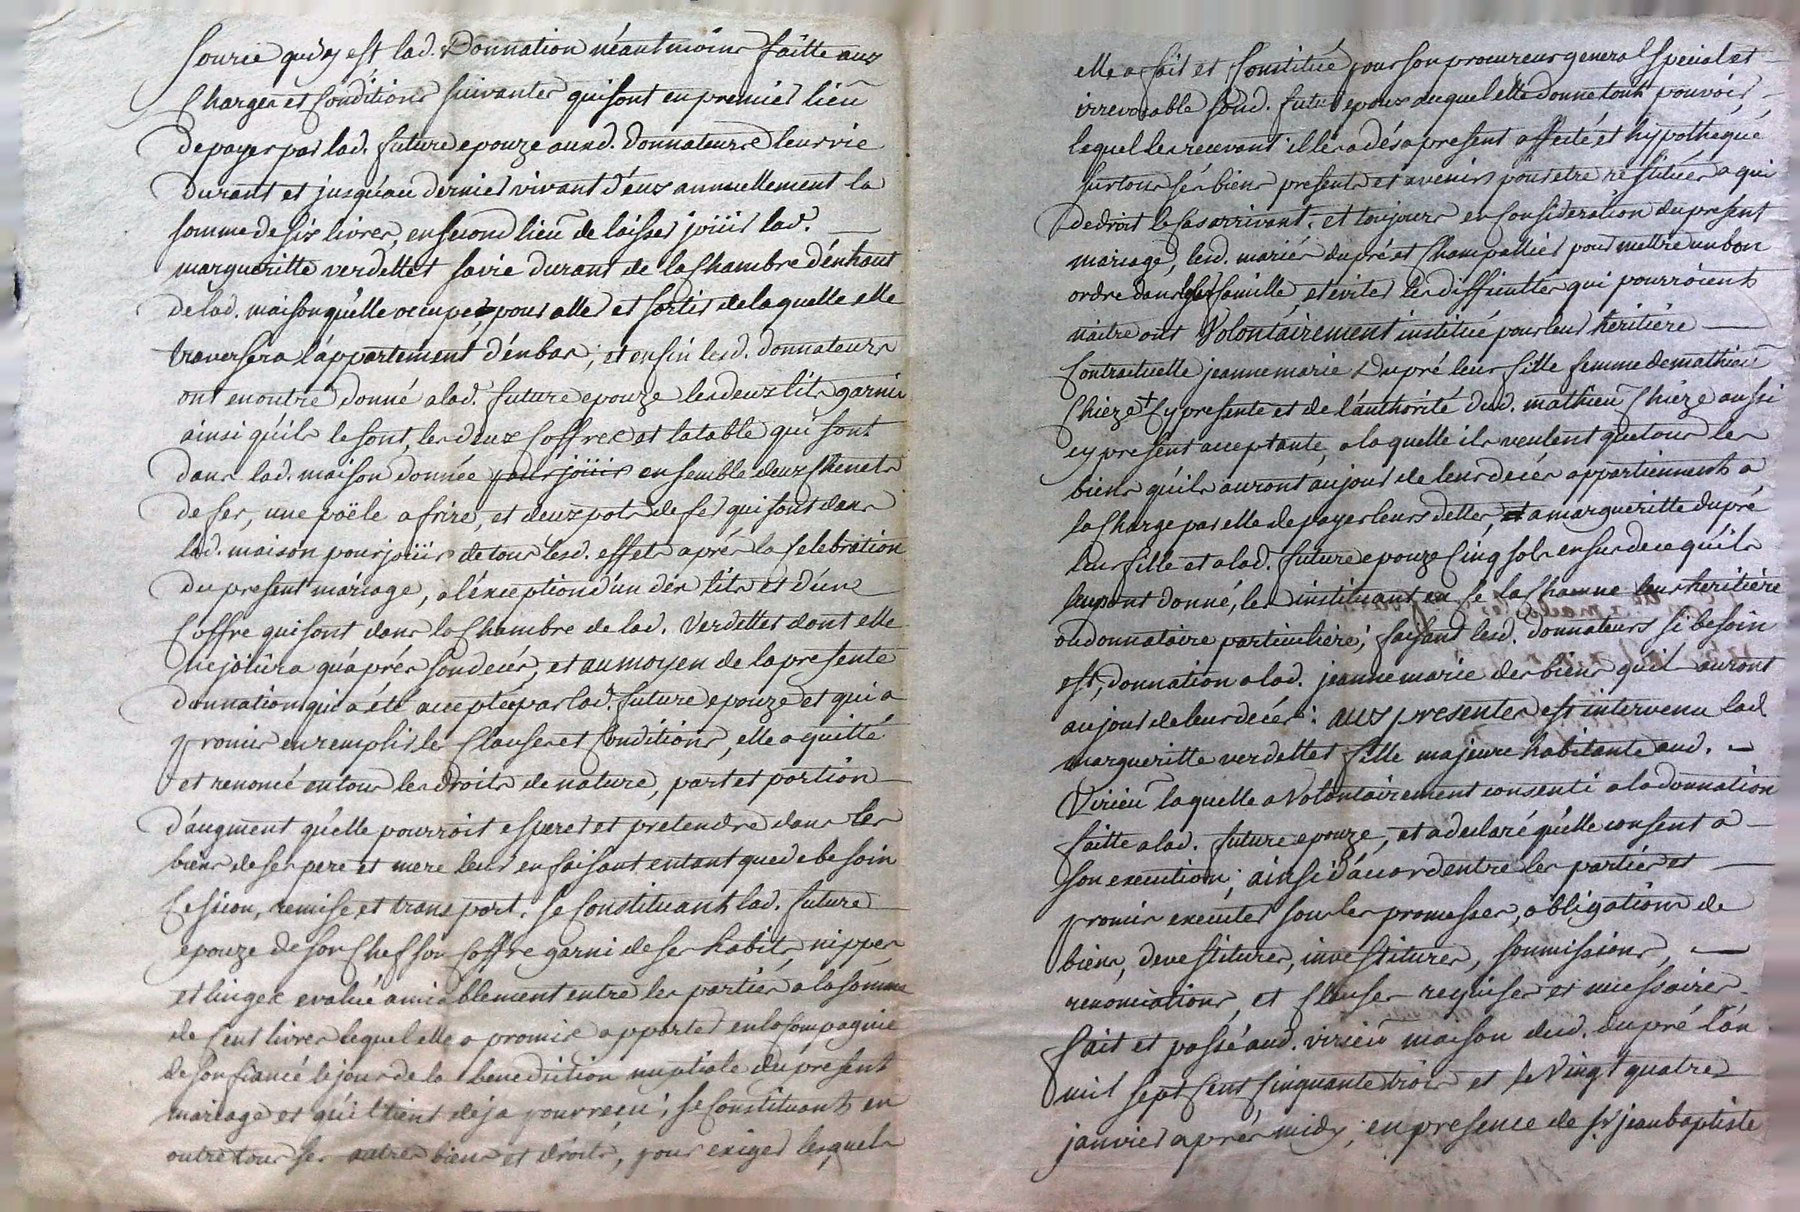 sourie quidy est lad. Donnation néantmoins faitte aux
Charges et Conditions suivantes qui sont en premier lieu
de payer par lad. future epouze auxd. donnateurs leur vie
durant et jusqu'au dernier vivant d'eux annuellement la
somme de six livres, en second lieu de laisser joüir lad.
margueritte verdettet sa vie durant de la Chambre d'enhaut
de lad. maison qu'elle occupe, pour aller et sortir de laquelle elle
traversera l'appartement d'enbas; et enfin lesd. donnateurs
ont en outre donné a lad. future epouze les deux lits garnis
ainsi qu'ils le sont, les deux Coffres et la table qui sont
dans lad. maison donnée pour joüir ensemble deux Chenets
de fer, une poële a frire, et deux pots de fer qui sont dans
lad. maison pour joüir de tous lesd. effets aprés la Celebration
du present mariage, a l'exception d'un des lits et d'un
Coffre qui sont dans la Chambre de lad. Verdettet dont elle
ne joüira qu'aprés son decés, et au moyen de la presente
donnation qui a été acceptée par lad. future epouze et qui a
promis en remplir les Clauses et Conditions, elle a quitté
et renoncé en tous les droits de nature, part et portion
d'augment qu'elle pourroit esperer et pretendre dans les
biens de ses pere et mere leur en faisant entant que de besoin
Cession, remise et transport. se Constituant lad. future
epouze de son Chef son Coffre garni de ses habits, nippes
et linges evalué amiablement entre les parties a la somme
de Cent livres lequel elle a promis apporter en la Compagnie
de son fiancé le jour de la benediction nuptiale du present
mariage et qu'il tient deja pour reçu; se Constituant en
outre tous ses autres biens et droits, pour exiger lesquels
elle a fait et Constitué pour son procureur general special et
irrevocable sond. futur epoux auquel elle donne tout pouvoir,
lequel les recevant il les a dés a present affecté et hypothequé
sur tous ses biens presents et avenirs pour etre restitués a qui
de droit le Cas arrivant; et toujours en Consideration du present
mariage, lesd. mariés dupré et Champallier pour mettre un bon
ordre dans leur famille, et eviter les difficultés qui pourroient
naitre ont Volontairement institué pour leur heritiere
Contractuelle jeanne marie Dupré leur fille femme de mathieu
Chieze + Cy presente et de l'authorité dud. mathieu Chieze aussi
cy present acceptante, a laquelle ils veulent que tous les
biens qu'ils auront au jour de leur decés appartiennent a
la Charge par elle de payer leurs dettes, et a margueritte dupré
leur fille et a lad. future epouze Cinq sols en sus de ce qu'ils
leur ont donné, les instituant en Ce la Chacune leur heritière
ou donnataire particuliere; faisant lesd. donnateurs si besoin
est, donnation a lad. jeanne marie des biens qu'il auront
au jour de leur decés: aux presentes est intervenu lad.
margueritte verdettet fille majeure habitante aud.
Virieu laquelle a Volontairement consenti a la donnation
faitte a lad. future epouze, et a declaré qu'elle consent a
son execution; ainsi d'accord entre les parties et
promis executer sous les promesses, obligations de
biens, devestitures, investitures, soumissions,
renonciations, et Clauses requises et necessaires
fait et passé aud. virieu maison dud. dupré l'an
mil sept Cent Cinquante trois et le Vingt quatre
janvier aprés midy; en presence de sr jean baptiste